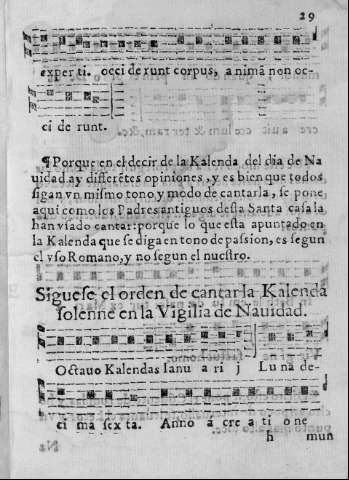 29
exper ti. occi de runt corpus, a nimã non oc-
ci de runt.
¶ Porque en el decir de la Kalenda del dia de Na
uidad ay diferẽtes opiniones, y es bien que todos
sigan vn mismo tono y modo de cantarla, se pone
aqui como los Padres antigues desta Santa casa la
han vsado cantar: porque lo que esta apuntado en
la Kalenda que se diga en tono de passion, es segun
el vso Romano, y no segun el nuestro.
Siguese el orden de cantar la Kalenda
solenne en la Vigilia de Nauidad.
Octauo Kalendas Ianu a ri j Lu na de-
ci ma sexta. Anno a cre a ti one
h mun